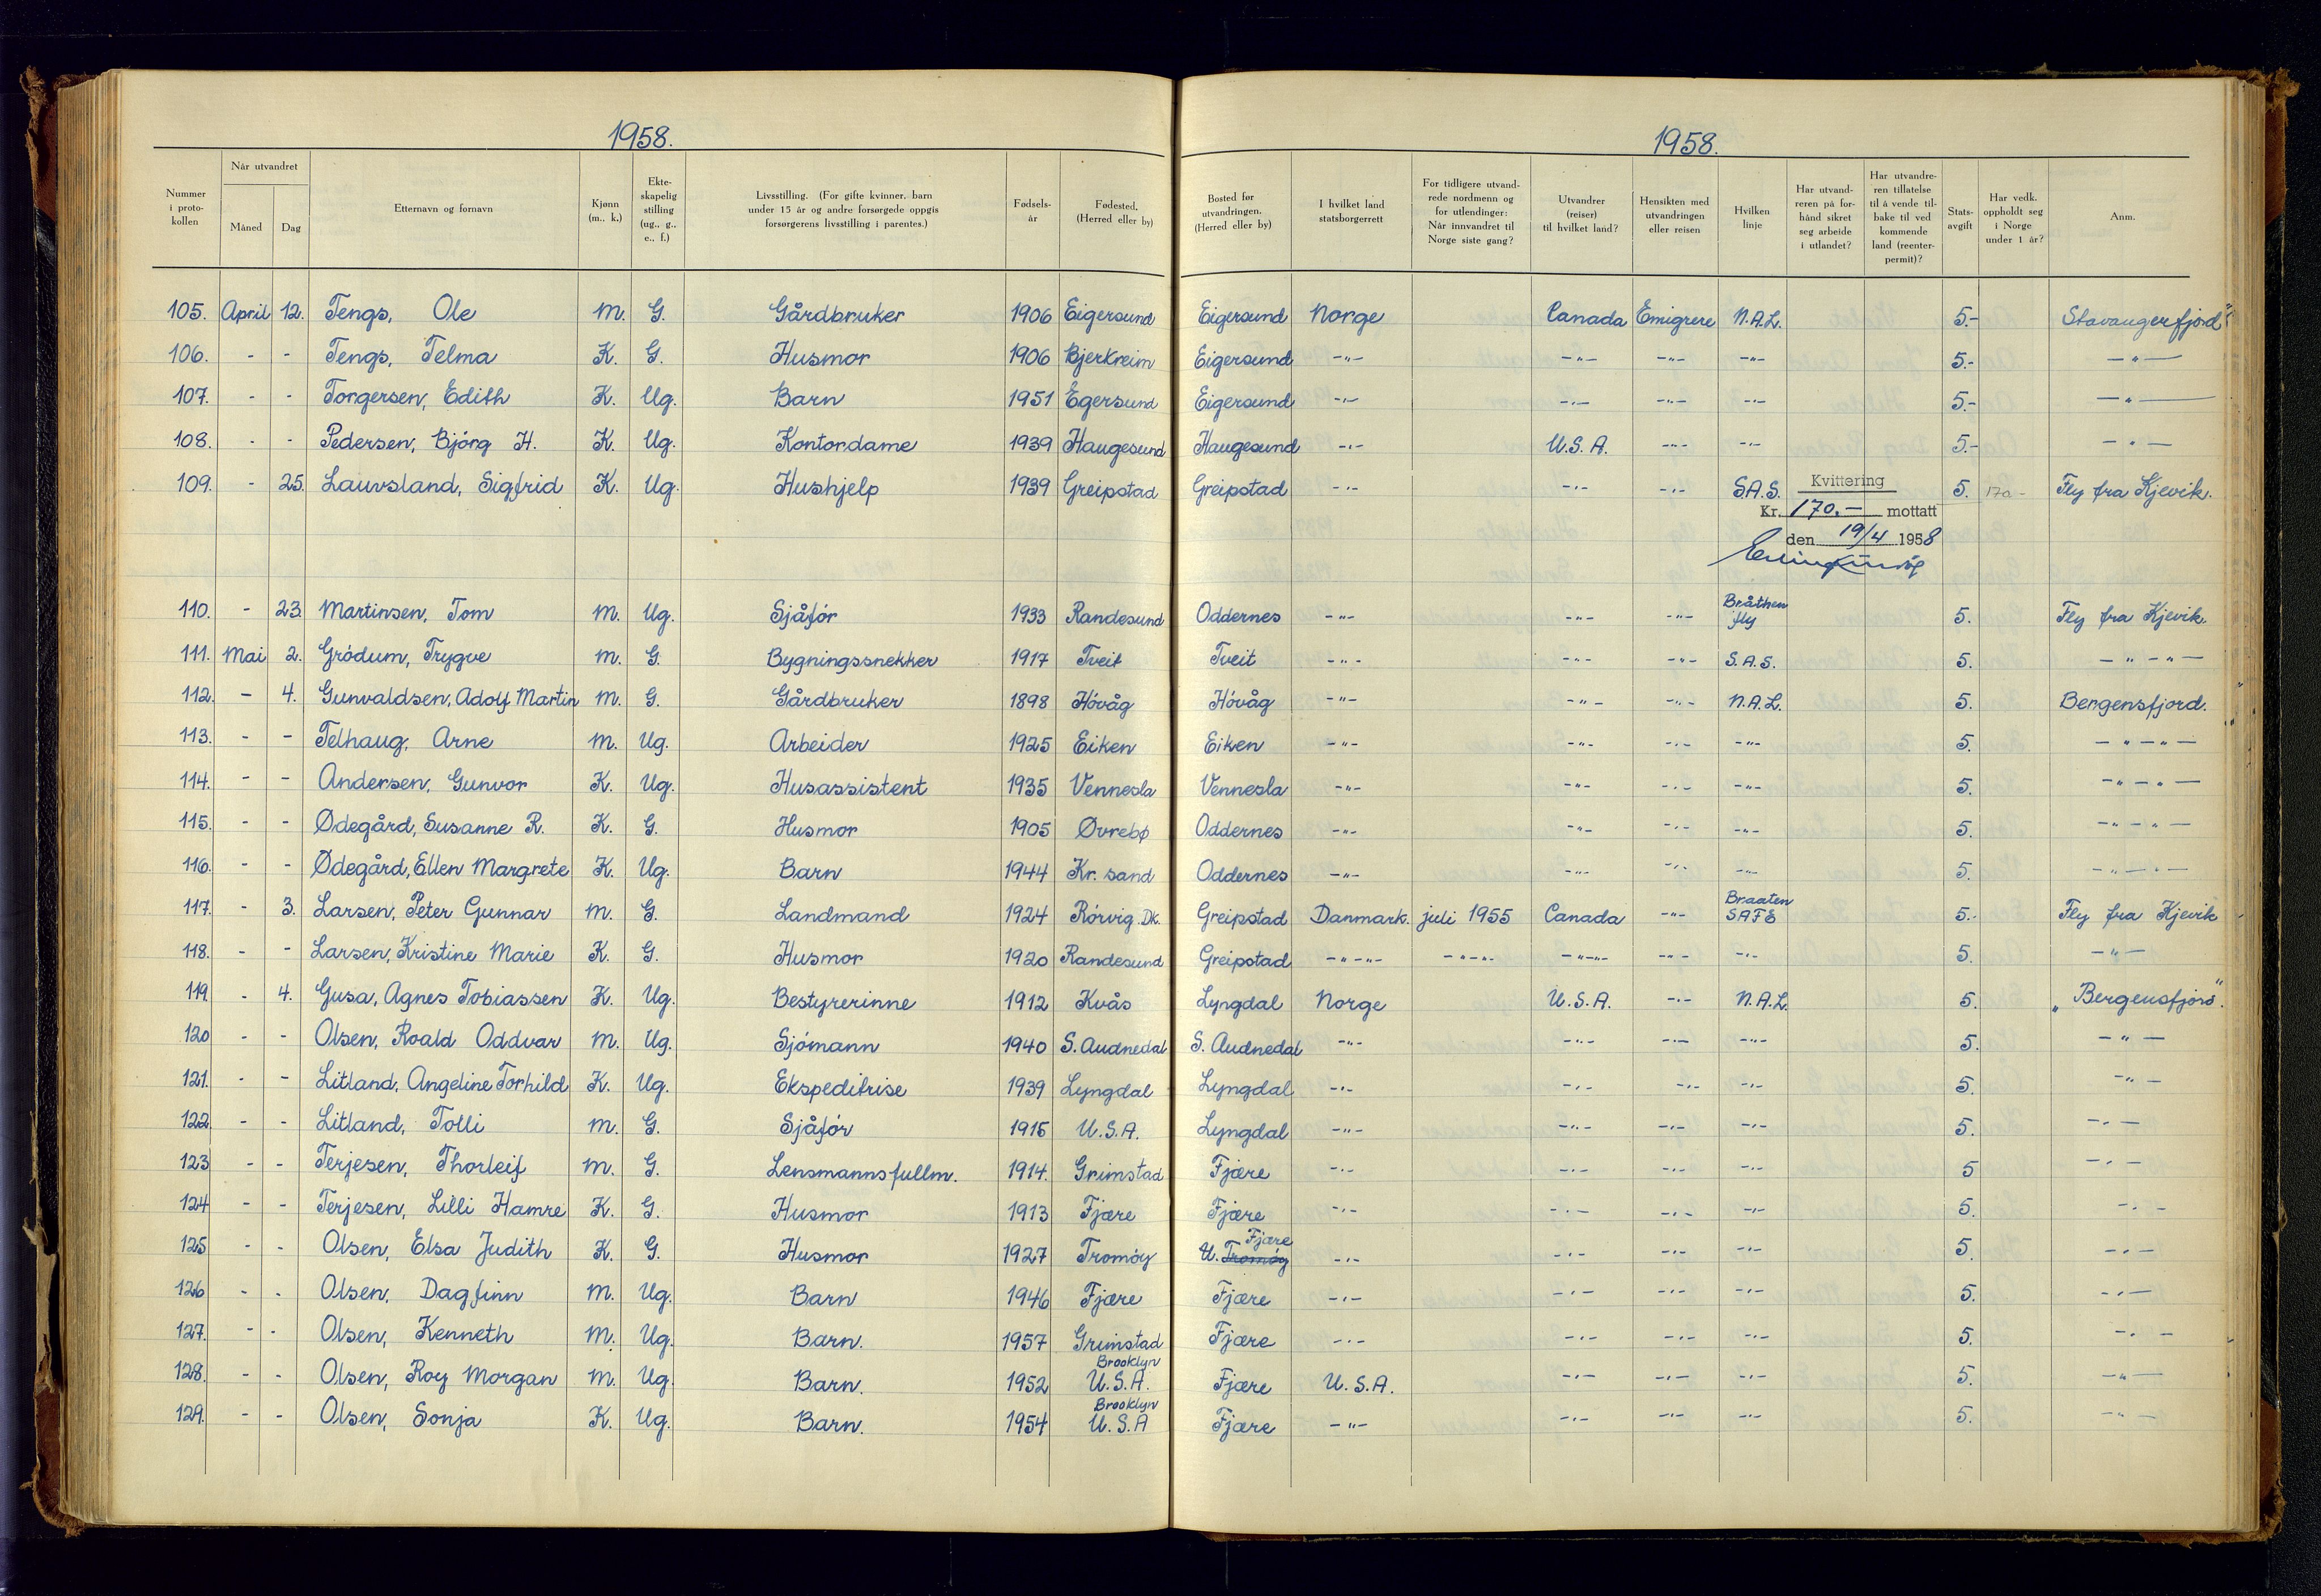 1958.
1958.
Nummer i protokollen | Når utvandret Måned | Dag | Etternavn og fornavn | Kjønn (m., k.) | Ekteskapelig stilling (ug., g., e., f.) | Livsstilling. (For gifte kvinner, barn under 15 år og andre forsørgede oppgis forsørgerens livsstilling i parentes.) | Fødselsår | Fødested. (Herred eller by) | Bosted før utvandringen. (Herred eller by) | I hvilket land statsborgerrett | For tidligere utvandrede nordmenn og for utlendinger: Når innvandret til Norge siste gang? | Utvandrer (reiser) til hvilket land? | Hensikten med utvandringen eller reisen | Hvilken linje | Har utvandreren på forhånd sikret seg arbeide i utlandet? | Har utvandreren tillatelse til å vende tilbake til vedkommende land (reenterpermit)? | Statsavgift | Har vedk. oppholdt seg i Norge under 1 år? | Anm.
105. April 12. Tengs, Ole M. G. Gårdbruker 1906 Eigersund Eigersund Norge Canada Emigrere N.A.L. 5.- Stavangerfjord"
106. - - Tengs, Telma K. G. Husmor 1906 Bjerkreim Eigersund -"- -"- -"- -"- 5.- -"-
107. - - Torgersen, Edith K. Ug. Barn 1951 Egersund Eigersund -"- -"- -"- -"- 5.- -"-
108. - - Pedersen, Bjórg H. K. Ug. Kontordame 1939 Haugesund Haugesund -"- U.S.A. -"- -"- 5.- -"-
109. - 25. Lauvsland, Sigfrid K. Ug. Hushjelp 1939 Greipstad Greipstad -"- -"- -"- S.A.S. 5. 170- Fly fra Kjevik.
Kvittering
Kr. 170.- mottatt
den 19/4 1958
110. - 23. Martinsen, Tom M. Ug. Sjåfór 1933 Randesund Oddernes -"- -"- -"- Bråthen fly 5. Fly fra Kjevik.
111. Mai 2. Gródum, Trygve M. G. Bygningssnekker 1917 Tveit Tveit -"- -"- -"- S.A.S. 5. -"-"-
112. - 4. Gunvaldsen, Adolf Martin M. G. Gårdbruker 1898 Hóvåg Hóvåg -"- -"- -"- N.A.L. 5. Bergensfjord.
113. - - Telhaug, Arne M. Ug. Arbeider 1925 Eiken Eiken -"- -"- -"- -"- 5. -"-"-
114. - - Andersen, Gunvor K. Ug. Husassistent 1935 Vennesla Vennesla -"- -"- -"- -"- 5. -"-"-
115. - - Ødegård, Susanne R. K. G. Husmor 1905 Øvrebø Oddernes -"- -"- -"- -"- 5. -"-"-
116. - - Ødegård, Ellen Margrete K. Ug. Barn 1944 Kr. sand Oddernes -"- -"- -"- -"- 5. -"-"-
117. - 3. Larsen, Peter Gunnar M. G. Landmand 1924 Rórvig. DK. Greipstad Danmark. juli 1955 Canada -"- Braaten SAFE 5.- Fly fra Kjevik
118. - - Larsen, Kristine Marie K. G. Husmor 1920 Randesund Greipstad -"-"- -"-"- -"-"- -"- -"- 5. -"-
119. - 4. Gusa, Agnes Tobiassen K. Ug. Bestyrerinne 1912 Kvås Lyngdal Norge U.S.A. -"- N.A.L. 5. "Bergensfjord".
120 - - Olsen, Roald Oddvar M. Ug. Sjómann 1940 S. Audnedal S. Audnedal -"- -"- -"- -"- 5. -"-
121. - - Litland, Angeline Torhild K. Ug. Ekspeditrise 1939 Lyngdal Lyngdal -"- -"- -"- -"- 5. -"-
122. - - Litland, Tolli M. G. Sjåfór 1915 U.S.A. Lyngdal -"- -"- -"- -"- 5. -"-
123 - - Terjesen, Thorleif M. G. Lensmannsfullm. 1914. Grimstad Fjære -"- -"- -"- -"- 5 -"-
124 - - Terjesen, Lilli Hamre K. G. Husmor 1913 Fjære Fjære -"- -"- -"- -"- 5. -"-
125 - - Olsen, Elsa Judith K. G. Husmor 1927 Tromóy U. Tromóy Fjære -"- -"- -"- -"- 5. -"-
126 - - Olsen, Dagfinn M. Ug. Barn 1946 Fjære Fjære -"- -"- -"- -"- 5. -"-
127. - - Olsen, Kenneth M. Ug. Barn. 1957 Grimstad Fjære -"- -"- -"- -"- 5. -"-
128. - - Olsen, Roy Morgan M. Ug. Barn. 1952 Brooklyn U.S.A. Fjære U.S.A. -"- -"- -"- 5. -"-
129. - - Olsen, Sonja K. Ug. Barn. 1954 Brooklyn U.S.A Fjære -"- -"- -"- -"- 5. -"-